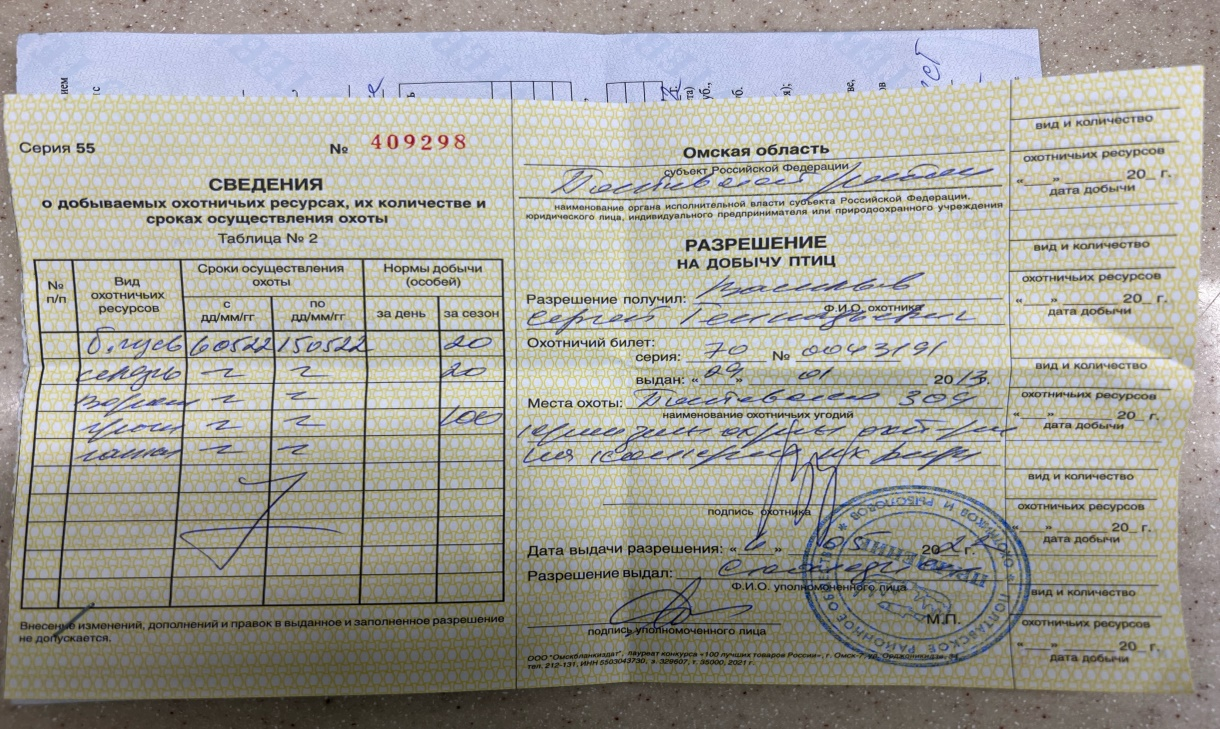 Серия 55 № 409298
СВЕДЕНИЯ
о добываемых охотничьих ресурсах, их количестве и
сроках осуществления охоты
Таблица № 2
№ п/п Вид охотничьих ресурсов Сроки осуществления охоты Нормы добычи (особей)
с дд/мм/гг по дд/мм/гг за день за сезон
б. гусь 60522 150522 20
20
100
Внесение изменений, дополнений и правок в выданное и заполненное разрешение
не допускается.
Омская область
субъект Российской Федерации
наименование органа исполнительной власти субъекта Российской Федерации,
юридического лица, индивидуального предпринимателя или природоохранного учреждения
РАЗРЕШЕНИЕ
НА ДОБЫЧУ ПТИЦ
Разрешение получил:
Ф.И.О. охотника
Сергей Геннадьевич
Охотничий билет:
серия: 70 № 0043191
выдан: « 29 » 01 2013г.
Места охоты:
наименование охотничьих угодий
подпись охотника
Дата выдачи разрешения: « 6 » 05 2022 г.
Разрешение выдал:
Ф.И.О. уполномоченного лица
М.П.
подпись уполномоченного лица
ООО "Омскбланкиздат", лауреат конкурса «100 лучших товаров России», г. Омск-7, ул. Орджоникидзе, 34,
тел. 212-131, ИНН 5503043730, з. 329607, т. 35000, 2021 г.
ПОЛТАВСКОЕ РАЙОННОЕ ОБЩЕСТВО ОХОТНИКОВ И РЫБОЛОВОВ
вид и количество
охотничьих ресурсов
«__»______20_ г.
дата добычи
вид и количество
охотничьих ресурсов
«__»______20_ г.
дата добычи
вид и количество
охотничьих ресурсов
«__»______20_ г.
дата добычи
вид и количество
охотничьих ресурсов
«__»______20_ г.
дата добычи
вид и количество
охотничьих ресурсов
«__»______20_ г.
дата добычи